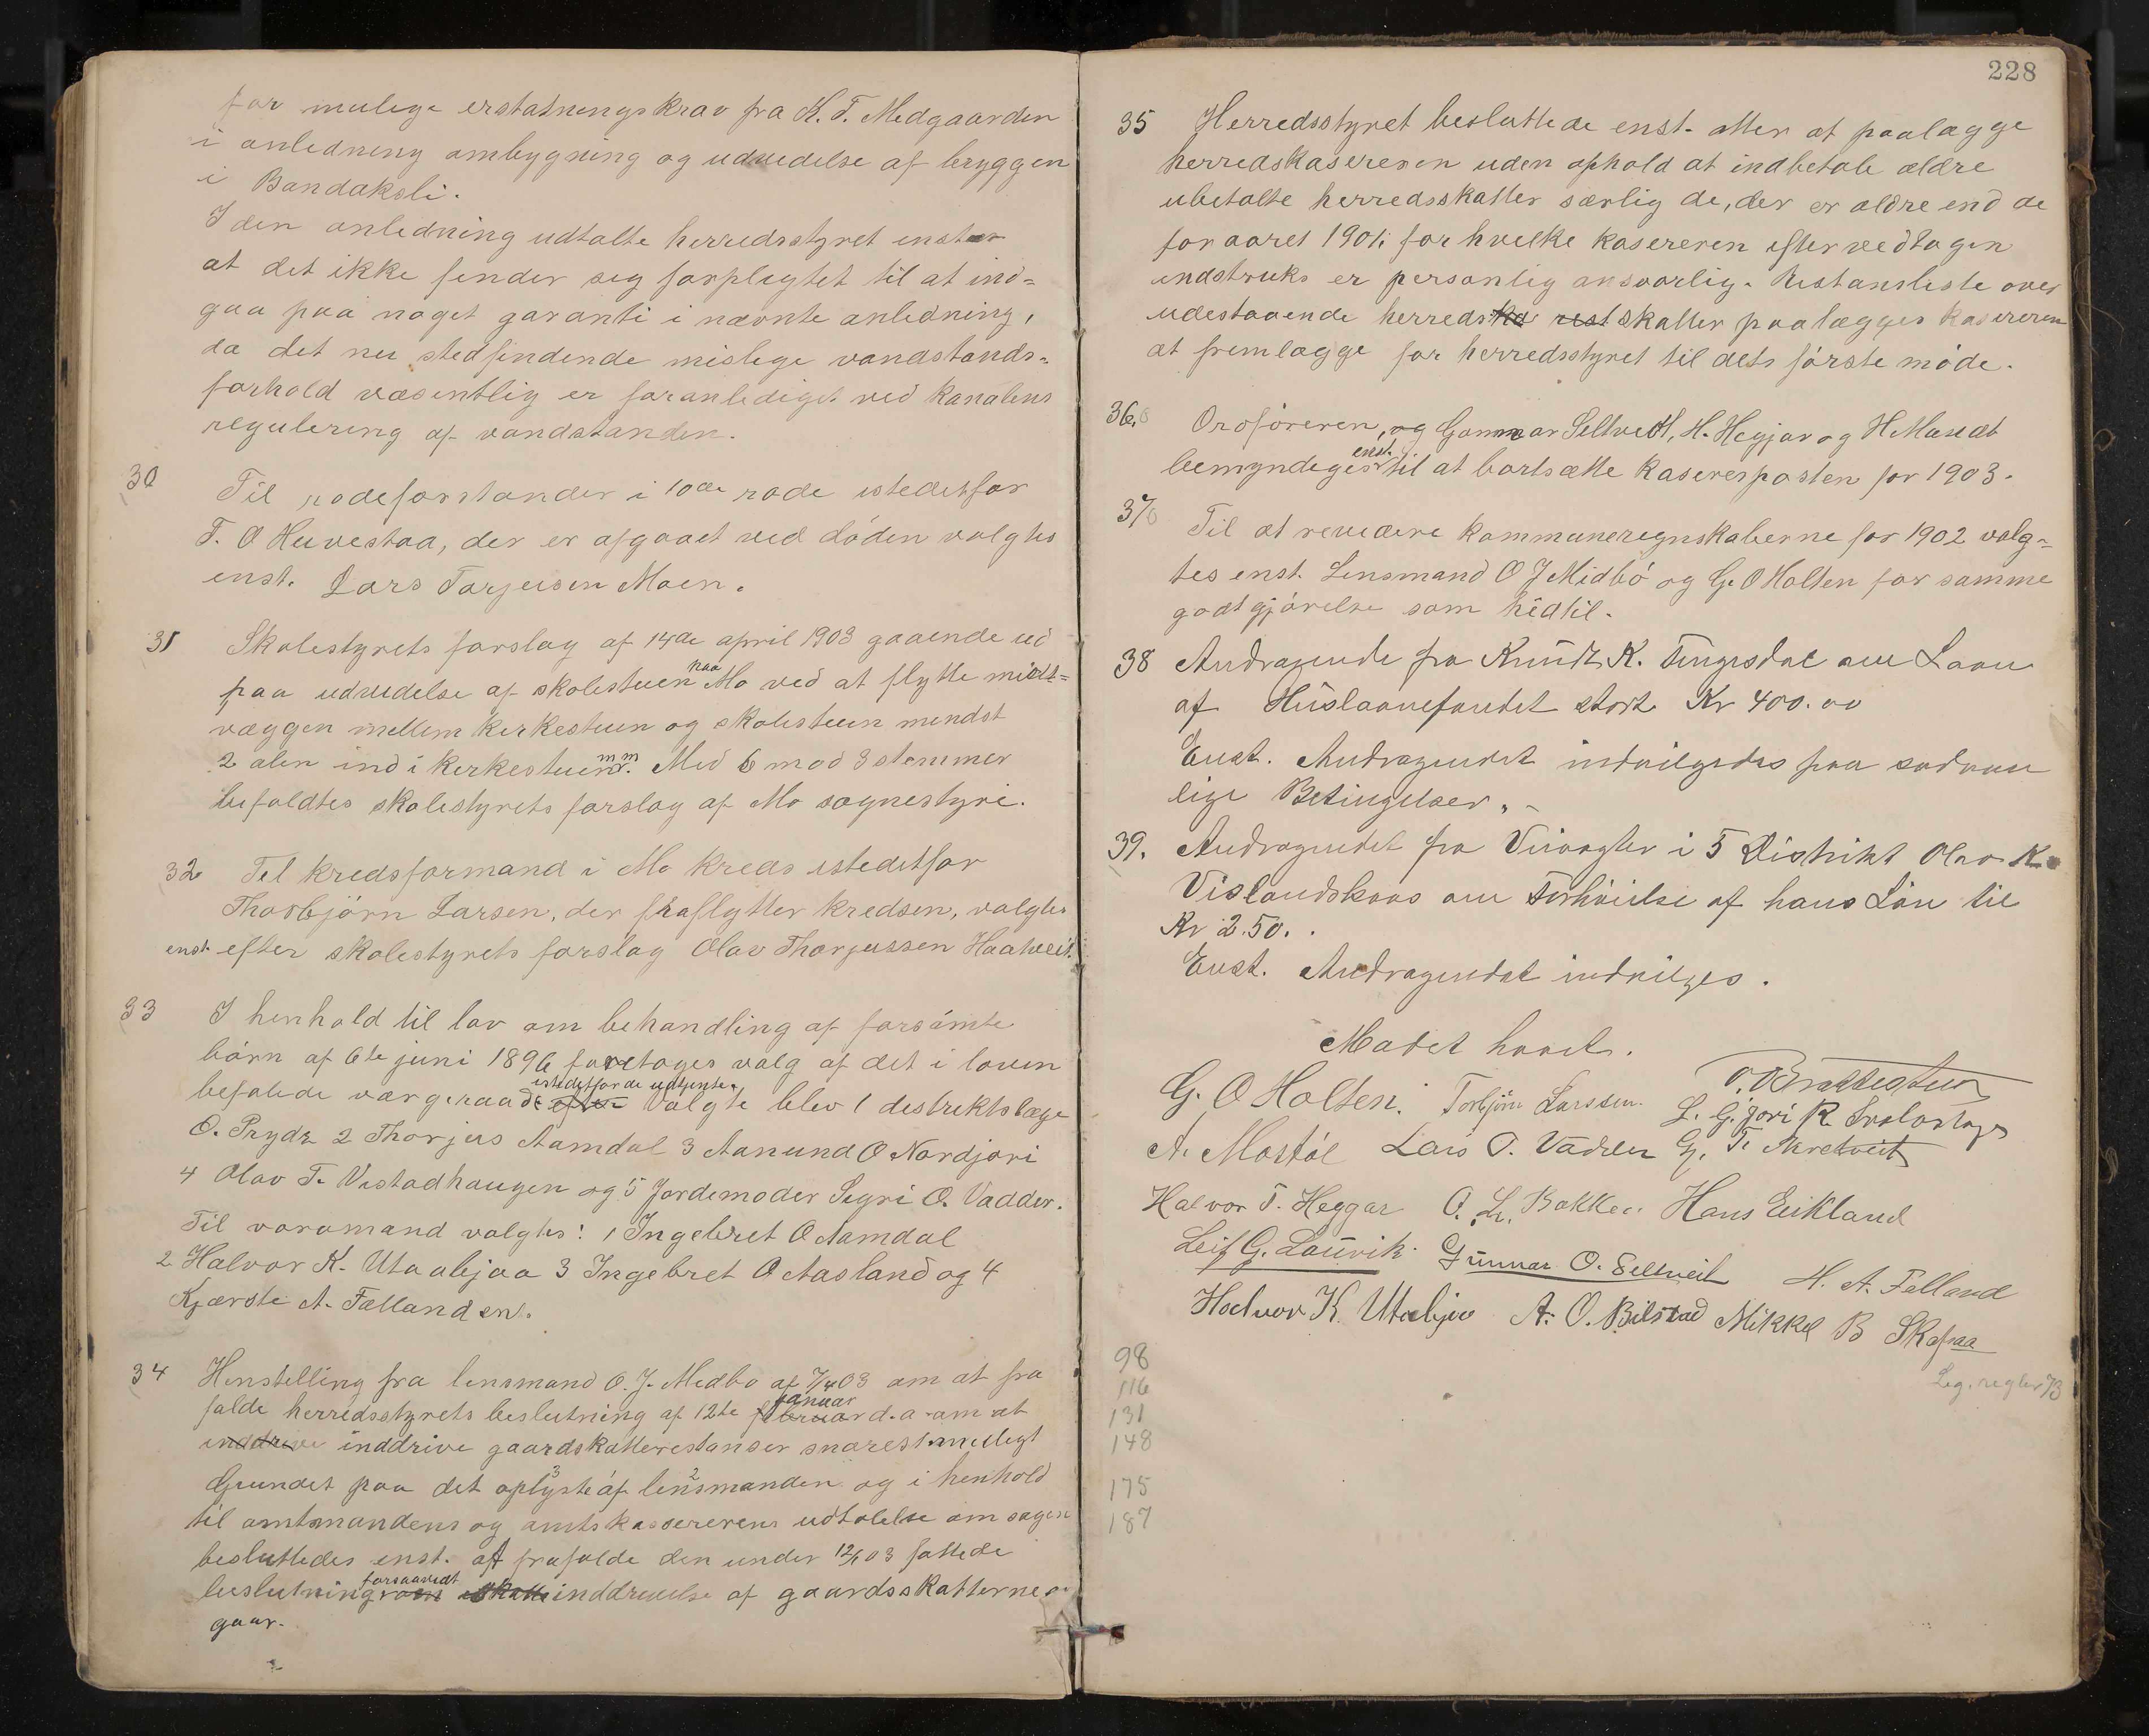 for mulige erstatningskrav fra K. T. Medgaarden
i anledning ombygning og udvidelse af bryggen
i Bandaksli.
I den anledning udtalte herredsstyret enst
at det ikke finder sig forpligtet til at ind-
gaa paa noget garanti i nævnte anledning,
da det nu stedfindende mislige vandstands-
forhold væsentlig er foranlediget ved kanalens
regulering af vandstanden.
30 Til rodeforstander i 10de rode istedetfor
T. O Huvestaa, der er afgaaet ved døden valgtes
enst. Lars Torjusen Moen.
31 Skolestyrets forslag af 14de april 1903 gaaende ud
paa udvidelse af skolestuen paa Mo ved at flytte midt-
væggen mellem kirkestuen og skolestuen mindst
2 alen ind i kirkestuen m m. Med 6 mod 3 stemmer
bifaldtes skolestyrets forslag af Mo sognestyre.
32 Til kredsformand i Mo kreds istedetfor
Thorbjørn Larsen, der fraflytter kredsen, valgtes
enst. efter skolestyrets forslag Olav Thorjussen Haatveit.
33 I henhold til lov om behandling af forsømte
børn af 6te juni 1896 foretoges valg af det i loven
befalede værgeraad istedetfor de udtjente. Valgte blev 1 distriktslæge
O. Prydz 2 Thorjus Aamdal 3 Aanund O Nordjori
4 Olav T. Vistadhaugen og 5 Jordemoder Sigri O. Vadder.
Til varamænd valgtes: 1 Ingebret O Aamdal
2 Halvor K. Utaabjaa 3 Ingebret O Aasland og 4
Kjærsti A. Fælland enst.
34 Henstilling fra lensmand O. J. Midbø af 7/4 03 om at fra
falde herredsstyrets beslutning af 12te februar januar d. a. om at
inddrive inddrive gaardskatterestanser snarest muligt
Grundet paa det oplyste³ af lensmanden² og i henhold
til amtmandens og amtskassererens udtalelse om sagen
besluttedes enst. at frafalde den under 12/1 03 fattede
beslutning forsaavidt inddrivelse af gaardsskatterne an
gaar.
228
35 Herredsstyret besluttede enst. atter at paalægge
herredskasereren uden ophold at indbetale ældre
ubetalte herredsskatter særlig de, der er ældre end de
for aaret 1901; for hvilke kasereren efter vedtagen
instruks er personlig ansvarlig. Restanseliste over
udestaaende herreds rest skatter paalægges kasereren
at fremlægge for herredsstyret til dets første møde.
36. Ordføreren, og Gunnar Seltveit, H. Hegjar og H Mandt
bemyndiges enst. til at bortsætte kasererposten for 1903.
37 Til at revidere kommuneregnskaberne for 1902 valg-
tes enst. Lensmand O J Midbø og G. O Holten for samme
godtgjørelse som hidtil.
38 Andragende fra Knudt K. Tungesdal om Laan
af Huslaanefondet stort Kr 400.00
Enst. Andragendet indvilgedes paa sædvan
lige Betingelser. -
39. Andragendet fra Veivogter i 5 Distrikt Olav K.
Vislandskaas om Forhøielse af hans Løn til
Kr 2.50.
Enst. Andragendet indvilges.
Mødet hævet.
G. O Holten. Torbjørn Larssen.
A. Mostøl Lars O. Vadder G. T. Skretveit
Halvor T. Heggar O. L. Bakken Hans Eikland
Leif G. Lauvik. Gunnar O. Seltveit H. A. Felland
Hoelvor K. Utabjaa A. O. Bilstad Mikkel B Skafsaa
98
116
131
148
175
187